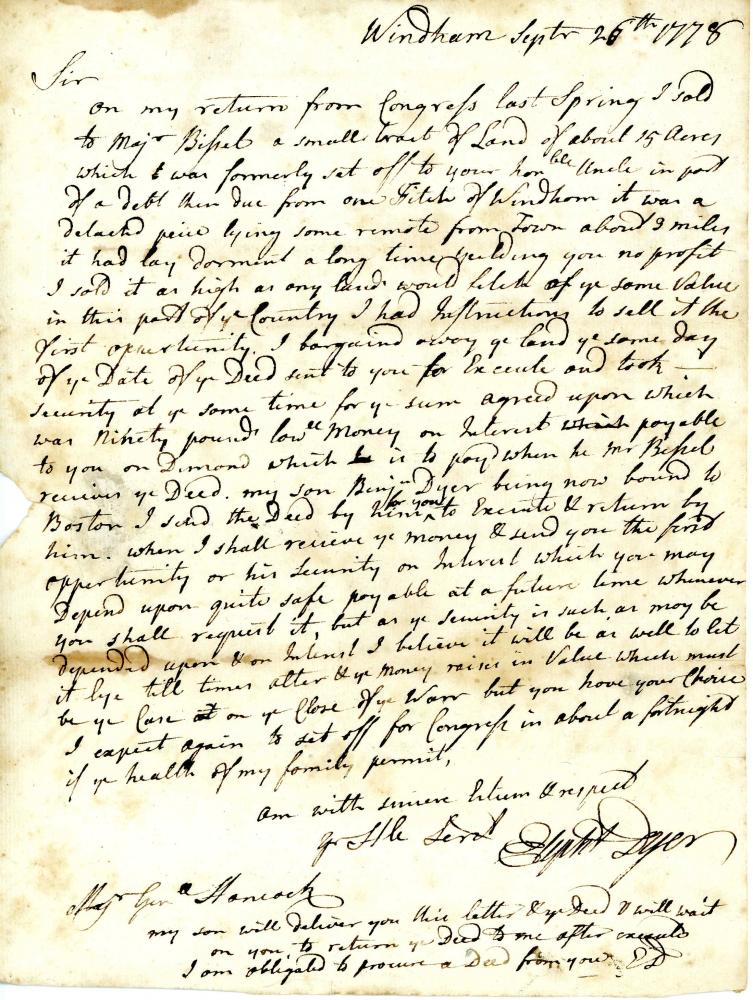 Windham Septr 26th 1778
Sir
on my return from Congress last Spring I sold
to Majr Bissel a small tract of Land of about 15 Acres
which was formerly set off to your honble Uncle in part
of a debt then due from one Fitch of Windham it was a
detachd peice lying some remote from Town about 3 miles
it had lay dorment a long time yeilding you no profit
I sold it as high as any land would fetch of ye same Value
in this part of ye Country I had Instructions to sell it the
first oppertunity. I bargaind away ye land ye same day
of ye Date of ye Deed sent to you for Execute and took
security at ye same time for ye sum agreed upon which
was Ninety pounds lawll Money on Interest which payable
to you on Dimand which is to pay when he Mr Bissel
recives ye Deed. my son Benjn Dyer being now bound to
Boston I send the Deed by him for you to Execute & return by
him. when I shall recieve ye money & send you the first
oppertunity or his Security on Interest which you may
Depend upon quite safe payable at a future time whenever
you shall request it, but as ye security is such as may be
depended upon & on Interest I believe it will be as well to let
it lye till times alter & ye Money raises in Value which must
be ye Case at on ye Close of ye Warr but you have your Choice
I expect again to set off for Congress in about a fortnight
if ye health of my family permit,
am with sincere Esteem & respect
yr Hle Servt
Elipht Dyer
Majr Genll Hancock
my son will deliver you this letter & ye Deed & will wait
on you, to return ye Deed to me after execute
I am obligated to procure a Deed from you ED